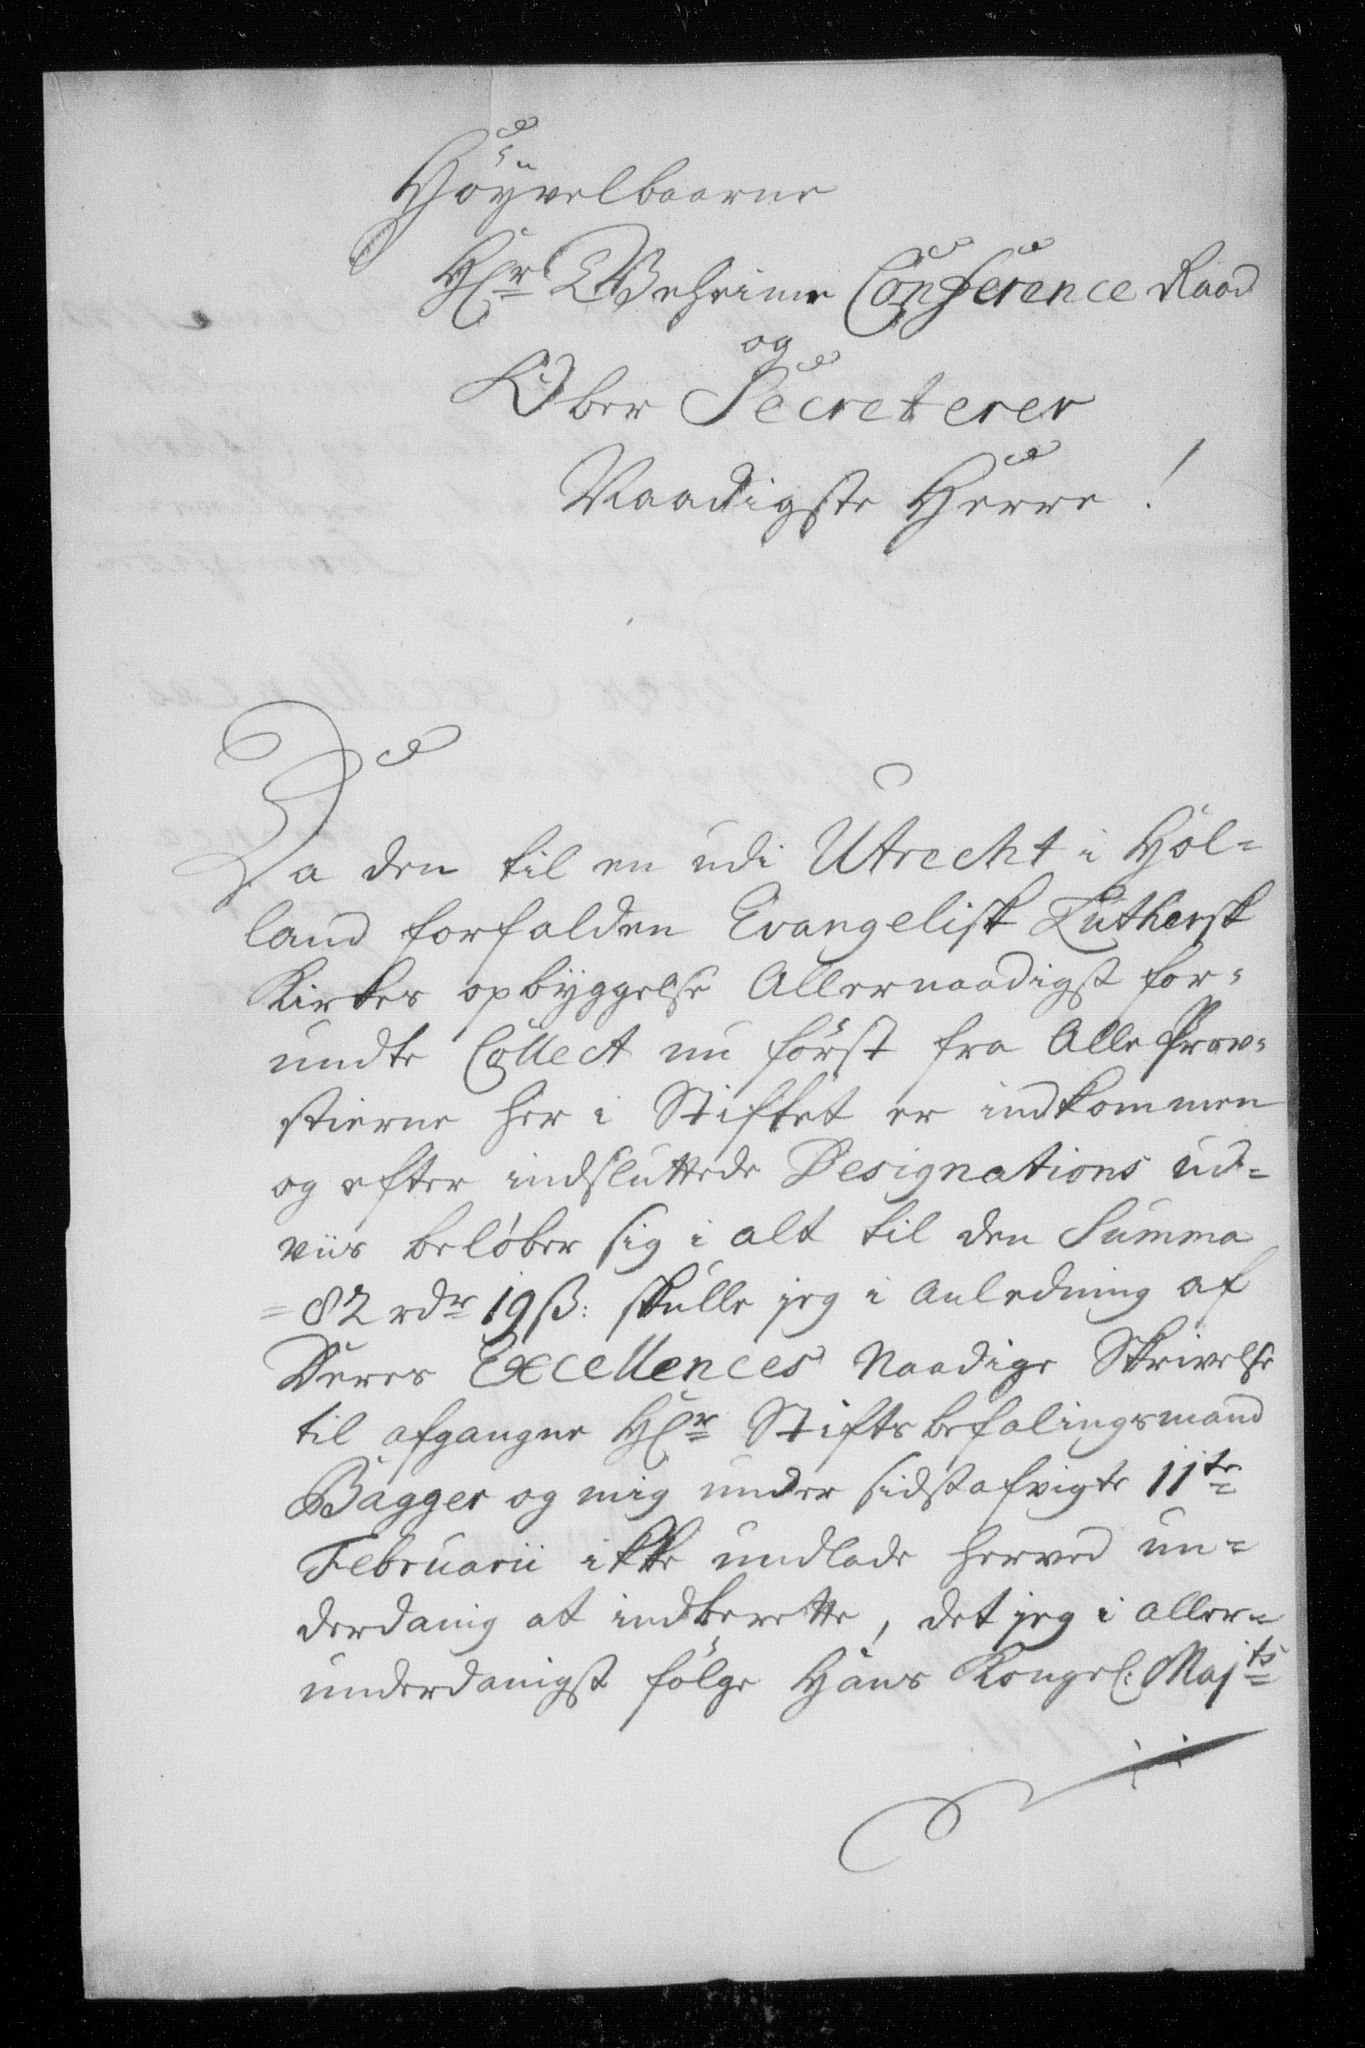 Höyvelbaarne
Hr Geheime Conference Raad
og
Ober Secreterer
Naadigste Herre!
Da den til en udi Utrecht i Hol=
land forfalden Evangelisk Luthersk
Kirkes opbyggelse Allernaadigst for=
undte Collect nu först fra Alle Prov=
stierne her i Stiftet er indkommen
og efter indsluttede Designations ud=
viis beløber sig i alt til den Summa
=82 rdr 19 ß: skulle jeg i Anledning af
Deres Excellences Naadige Skrivelse
til afgangne Hr Stiftsbefalingsmand
Bagger og mig under sidstafvigte 11te
Februarii ikke undlade herved un=
derdanig at indberette, det jeg i aller=
underdanigst fölge Hans Kongel: Majts